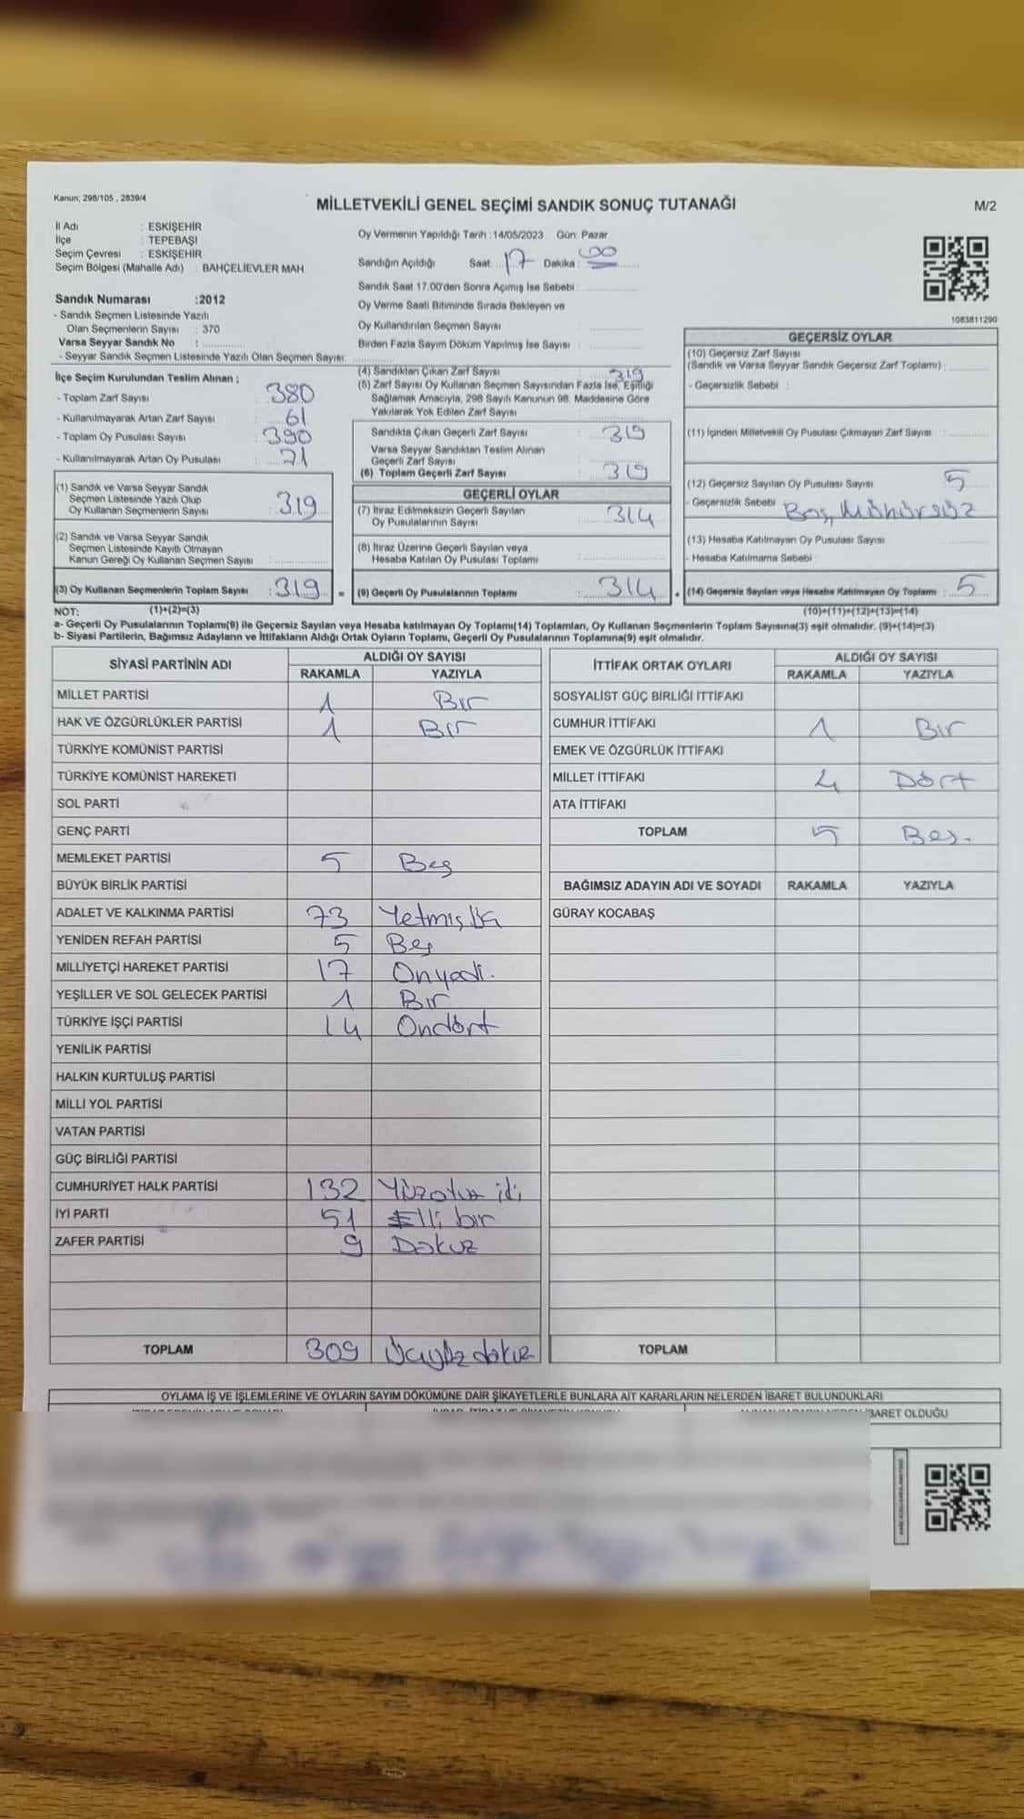 Kanun; 298/105 , 2839/4
MİLLETVEKİLİ GENEL SEÇİMİ SANDIK SONUÇ TUTANAĞI
M/2
İl Adı : ESKİŞEHİR
İlçe : TEPEBAŞI
Seçim Çevresi : ESKİŞEHİR
Seçim Bölgesi (Mahalle Adı) : BAHÇELİEVLER MAH.
Oy Vermenin Yapıldığı Tarih :14/05/2023 Gün: Pazar
Sandığın Açıldığı Saat 17 Dakika 00
Sandık Saat 17.00'den Sonra Açımış İse Sebebi
Oy Verme Saati Bitiminde Sırada Bekleyen ve
Oy Kullandırılan Seçmen Sayısı
Birden Fazla Sayım Döküm Yapılmış İse Sayısı
1083811290
Sandık Numarası :2012
- Sandık Seçmen Listesinde Yazılı
Olan Seçmenlerin Sayısı : 370
Varsa Seyyar Sandık No :
- Seyyar Sandık Seçmen Listesinde Yazılı Olan Seçmen Sayısı:
İlçe Seçim Kurulundan Teslim Alınan ;
- Toplam Zarf Sayısı 380
- Kullanılmayarak Artan Zarf Sayısı 61
- Toplam Oy Pusulası Sayısı 390
- Kullanılmayarak Artan Oy Pusulası 71
(1) Sandık ve Varsa Seyyar Sandık
Seçmen Listesinde Yazılı Olup
Oy Kullanan Seçmenlerin Sayısı 319
(2) Sandık ve Varsa Seyyar Sandık
Seçmen Listesinde Kayıtlı Olmayan
Kanun Gereği Oy Kullanan Seçmen Sayısı
(3) Oy Kullanan Seçmenlerin Toplam Sayısı : 319 =
(4) Sandıktan Çıkan Zarf Sayısı 319
(5) Zarf Sayısı Oy Kullanan Seçmen Sayısından Fazla İse, Eşitliği
Sağlamak Amacıyla, 298 Sayılı Kanunun 98. Maddesine Göre
Yakılarak Yok Edilen Zarf Sayısı
Sandıkta Çıkan Geçerli Zarf Sayısı : 319
Varsa Seyyar Sandıktan Teslim Alınan
Geçerli Zarf Sayısı
(6) Toplam Geçerli Zarf Sayısı : 319
GEÇERLİ OYLAR
(7) İtiraz Edilmeksizin Geçerli Sayılan
Oy Pusulalarının Sayısı : 314
(8) İtiraz Üzerine Geçerli Sayılan veya
Hesaba Katılan Oy Pusulası Toplamı
(9) Geçerli Oy Pusulalarının Toplamı : 314
GEÇERSİZ OYLAR
(10) Geçersiz Zarf Sayısı
(Sandık ve Varsa Seyyar Sandık Geçersiz Zarf Toplamı) :
- Geçersizlik Sebebi :
(11) İçinden Milletvekili Oy Pusulası Çıkmayan Zarf Sayısı
(12) Geçersiz Sayılan Oy Pusulası Sayısı 5
- Geçersizlik Sebebi Boş, Mühürsüz
(13) Hesaba Katılmayan Oy Pusulası Sayısı
- Hesaba Katılmama Sebebi
(14) Geçersiz Sayılan veya Hesaba Katılmayan Oy Toplamı : 5
NOT: (1)+(2)=(3)
(10)+(11)+(12)+(13)=(14)
a- Geçerli Oy Pusulalarının Toplamı(9) ile Geçersiz Sayılan veya Hesaba katılmayan Oy Toplamı(14) Toplamları, Oy Kullanan Seçmenlerin Toplam Sayısına(3) eşit olmalıdır. (9)+(14)=(3)
b- Siyasi Partilerin, Bağımsız Adayların ve İttifakların Aldığı Ortak Oyların Toplamı, Geçerli Oy Pusulalarının Toplamına(9) eşit olmalıdır.
SİYASİ PARTİNİN ADI ALDIĞI OY SAYISI
RAKAMLA YAZIYLA
MİLLET PARTİSİ 1 Bir
HAK VE ÖZGÜRLÜKLER PARTİSİ 1 Bir
TÜRKİYE KOMÜNİST PARTİSİ
TÜRKİYE KOMÜNİST HAREKETİ
SOL PARTİ
GENÇ PARTİ
MEMLEKET PARTİSİ 5 Beş
BÜYÜK BİRLİK PARTİSİ
ADALET VE KALKINMA PARTİSİ 73 Yetmiş
YENİDEN REFAH PARTİSİ 5 Beş
MİLLİYETÇİ HAREKET PARTİSİ 17 Onyedi.
YEŞİLLER VE SOL GELECEK PARTİSİ 1 Bir
TÜRKİYE İŞÇİ PARTİSİ 14 Ondört
YENİLİK PARTİSİ
HALKIN KURTULUŞ PARTİSİ
MİLLİ YOL PARTİSİ
VATAN PARTİSİ
GÜÇ BİRLİĞİ PARTİSİ
CUMHURİYET HALK PARTİSİ 132 Yüzotuz iki
İYİ PARTİ 51 Elli bir
ZAFER PARTİSİ 9 Dokuz
TOPLAM 309 Üçyüz dokuz
İTTİFAK ORTAK OYLARI ALDIĞI OY SAYISI
RAKAMLA YAZIYLA
SOSYALİST GÜÇ BİRLİĞİ İTTİFAKI
CUMHUR İTTİFAKI 1 Bir
EMEK VE ÖZGÜRLÜK İTTİFAKI
MİLLET İTTİFAKI 4 Dört
ATA İTTİFAKI
TOPLAM 5 Beş.
BAĞIMSIZ ADAYIN ADI VE SOYADI RAKAMLA YAZIYLA
GÜRAY KOCABAŞ
TOPLAM
OYLAMA İŞ VE İŞLEMLERİNE VE OYLARIN SAYIM DÖKÜMÜNE DAİR ŞİKAYETLERLE BUNLARA AİT KARARLARIN NELERDEN İBARET BULUNDUKLARI
İBARET OLDUĞU